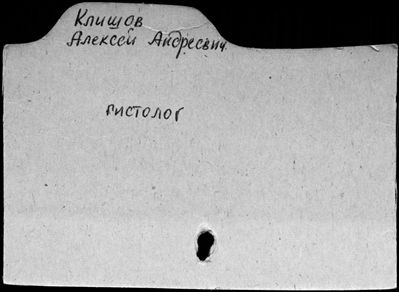 Клишов
Алексей Андреевич
гистолог